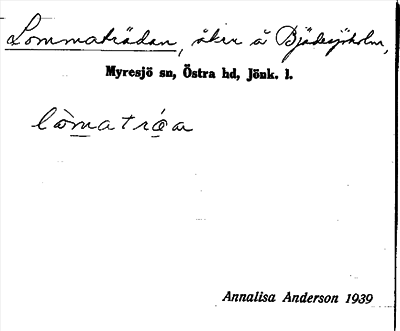 Lommaträdan, åker å Bjädesjöholm,
Myresjö sn, Östra hd, Jönk. l.
lòmatróa
Annalisa Anderson 1939